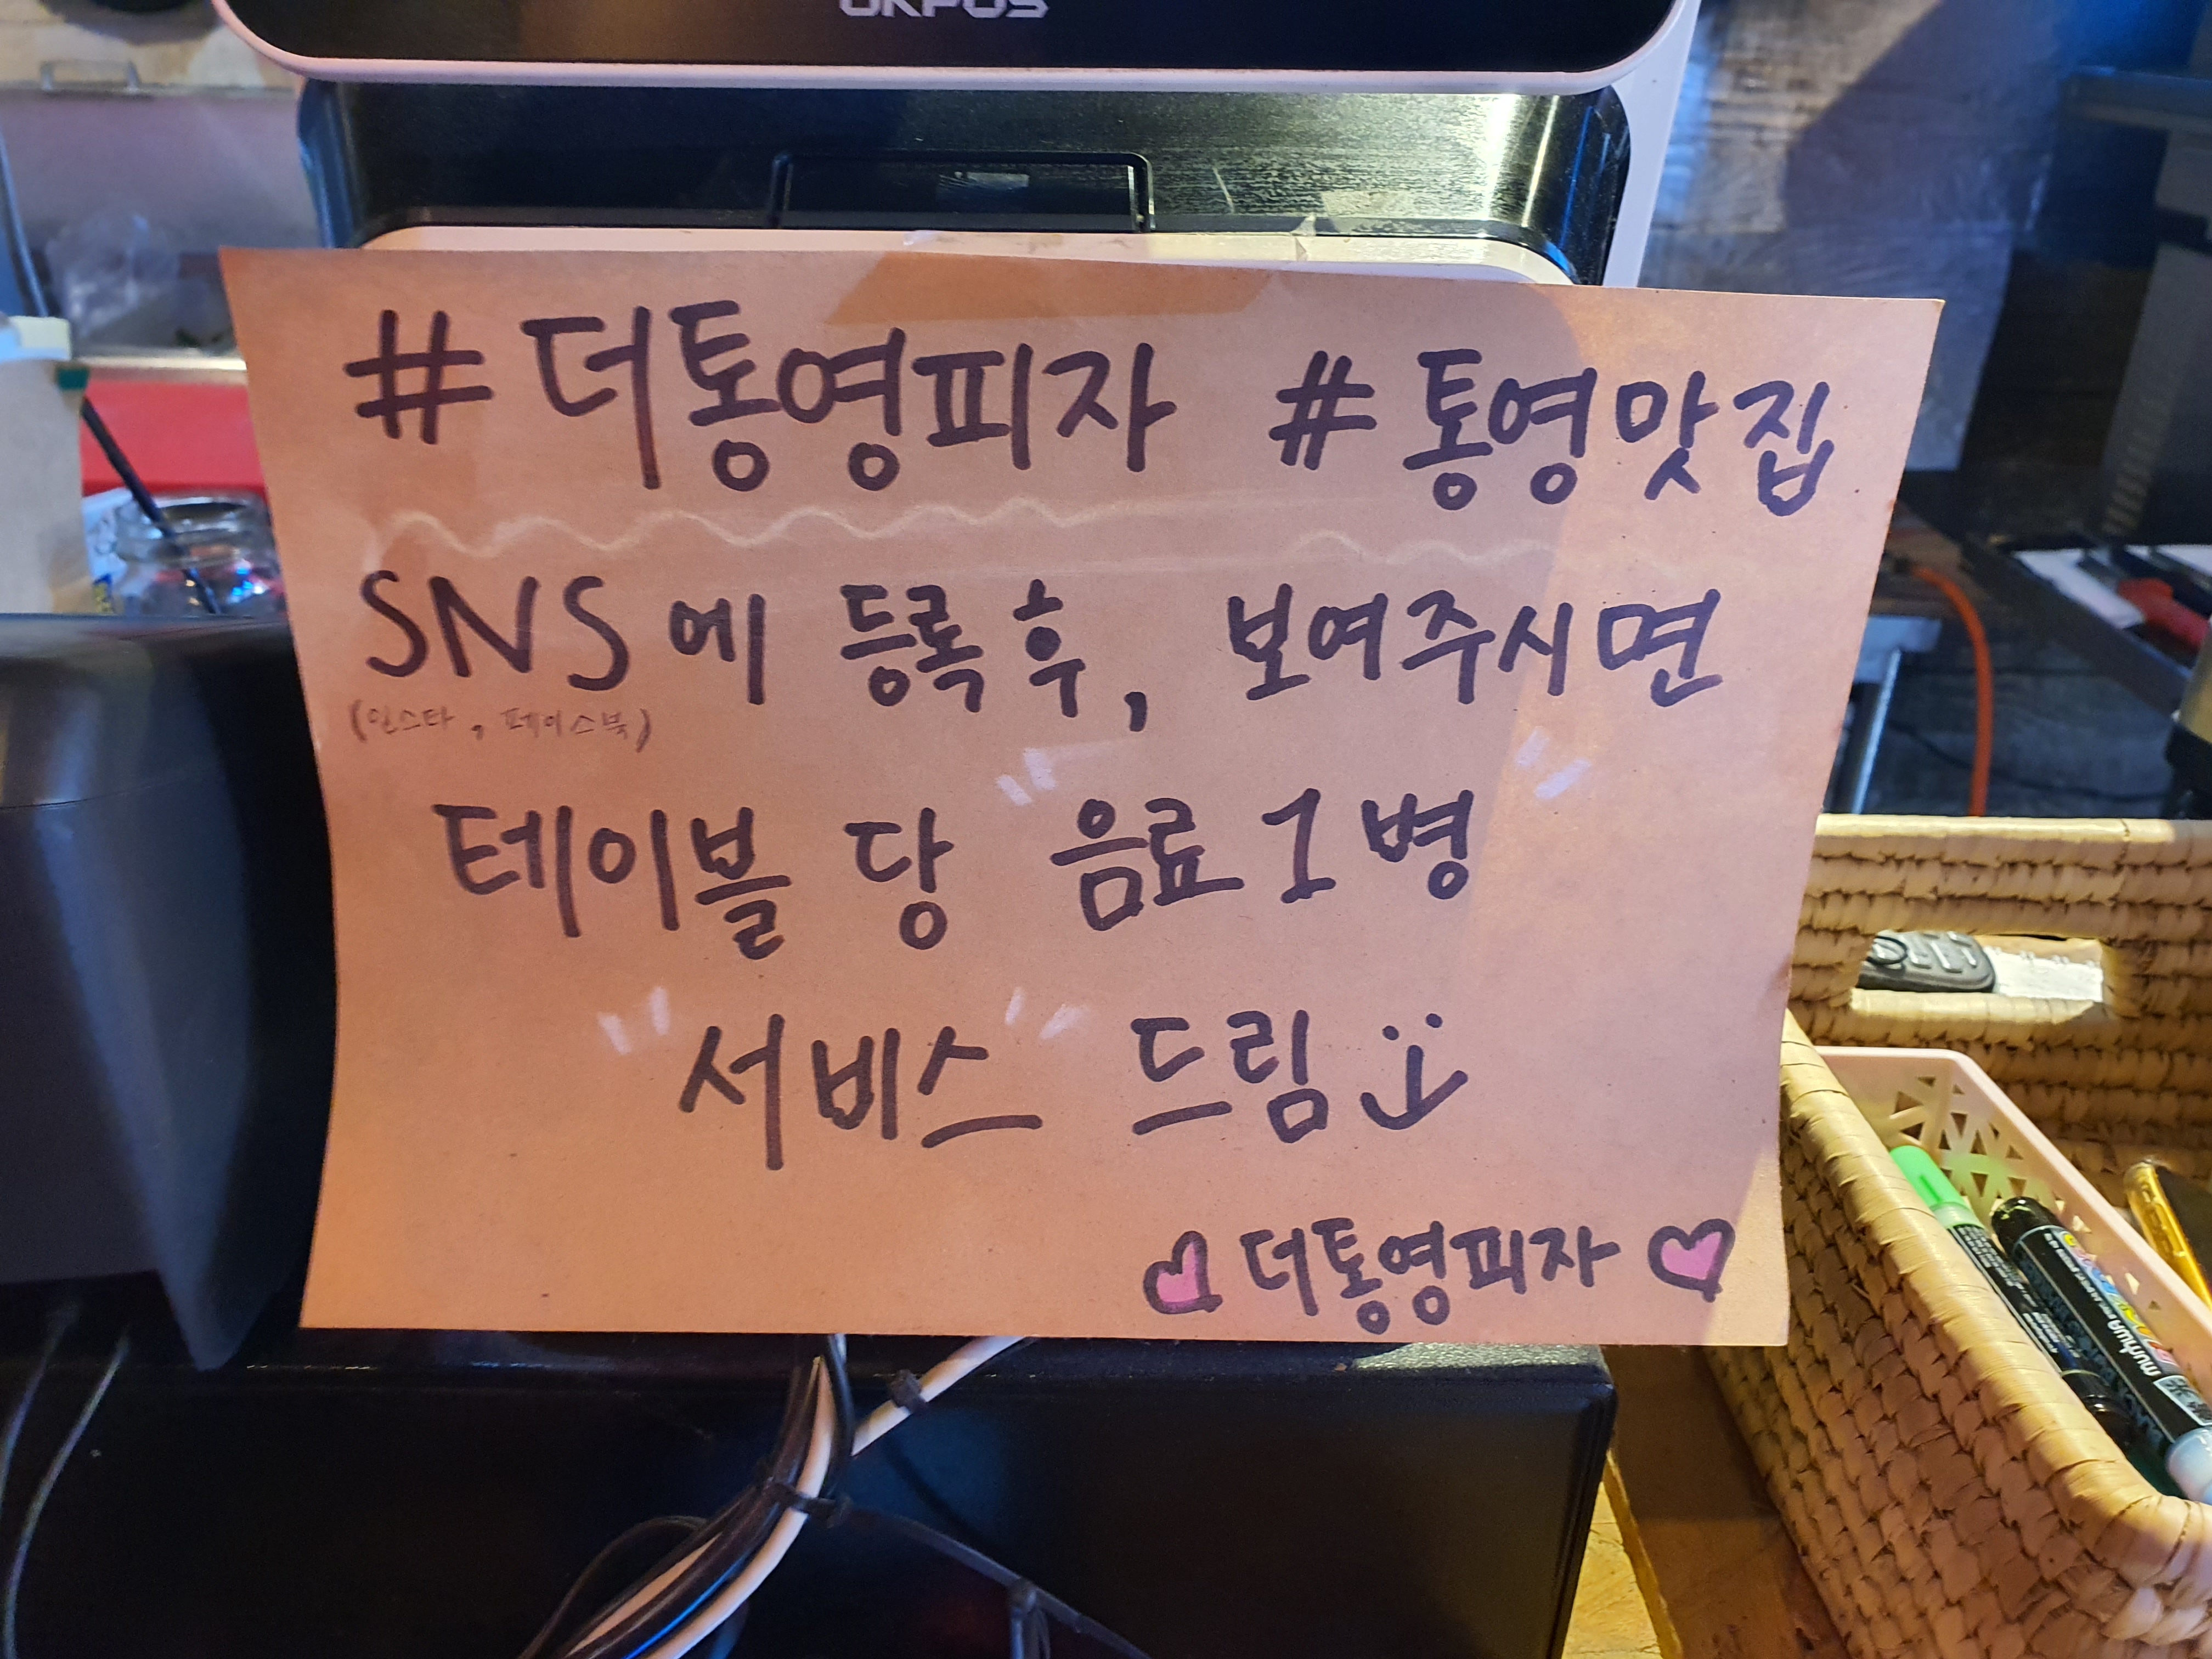 OKPOS
#더통영피자 #통영맛집
SNS에 등록후, 보여주시면
(인스타, 페이스북)
테이블 당 음료 1병
서비스 드림
더통영피자
munhwa